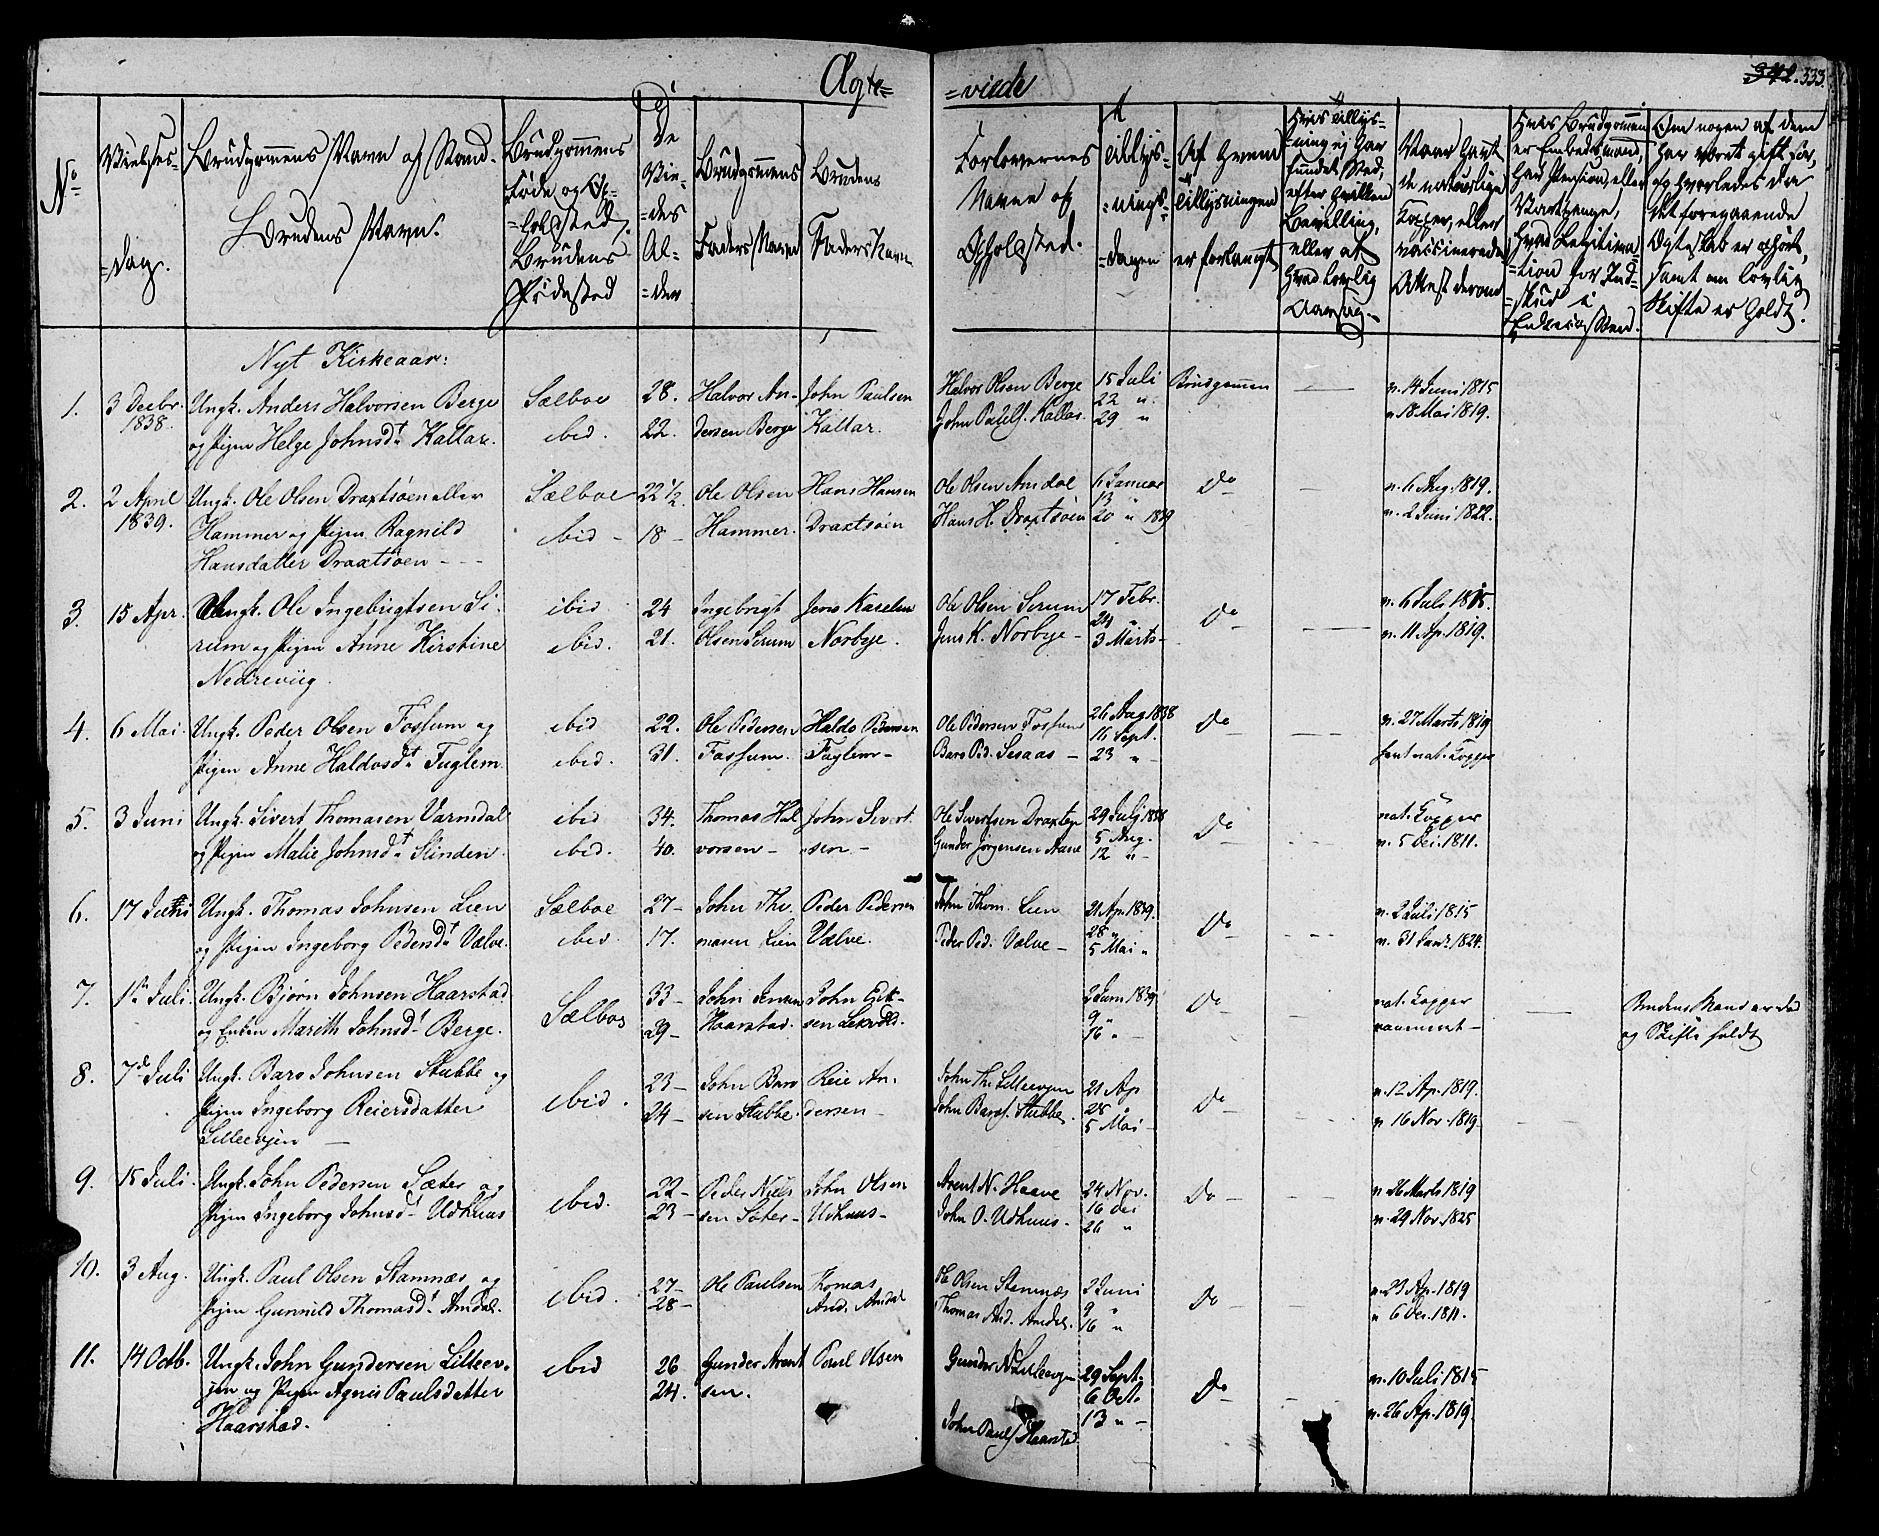 Ægte=
=viede
342. 333.
No
Vielses-
=dag.
Brudgommens Navn og Stand.
Brudens Navn.
Brudgommens
Føde og Op=
=holdsted,
Brudens
Fødested
De
Vie=
=des
Al=
=der
Brudgommens
Faders Navn
Brudens
Faders Navn
Forlovernes
Navne og
Opholdsted.
Tillys=
=nings=
=dagen
Af Hvem
Tillysningen
er forlangt
Hvis Tillys=
=ning ej har
fundet Sted,
efter hvilken
Bevilling,
eller af
hvad lovlig
Aarsag.
Naar havt
de naturlige
Kopper, eller
vaccinerede
Attest derom
Hvis Brudgommen
er Embedsmand,
har Pension, eller
Vartpenge,
hvad Legitima=
=tion for Ind=
=skud i
Enkecassen.
Om nogen af dem
har været gift før,
og hvorledes da
det foregaaende
Ægteskab er ophørt,
samt om lovlig
Skifte er holdt?
Nyt Kirkeaar:
1. 3 Decbr. 1838. Ungk. Anders Halvorsen Berge Sælboe 28. Halvor An- John Paulsen Halvor Olsen Berge 15 Juli Brudgommen — v. 14 Juni 1815
og Pigen Helge Johnsdt Kallar. ibid. 22. dersen Berge Kallar. John Pauls. Kallar 22 " 29 " v. 18 Mai 1819.
2. 2 April 1839. Ungk. Ole Olsen Draxtsøen eller Sælboe 22 1/2 Ole Olsen Hans Hansen Ole Olsen Amdal 6 Januar Do — v. 6 Aug. 1819.
Hammer og Pigen Ragnild ibid – 18 – Hammer. Draxtsøen Hans H. Draxtsøen 13 20 " 1839 v. 2 Juni 1822.
Hansdatter Draxtsøen – – –
3. 15 Apr. Ungk. Ole Ingebrigtsen Se- ibid 24 Ingebrigt Jens Ole Olsen Serum 17 Febr. Do — v. 6 Juli 1815.
rum og Pigen Anne Kirstine ibid. 21. Olsen Serum Norbye. Jens K. Norbye – 24 " 3 Marts – v. 11 Ap. 1819.
Nedreviig.
4. 6 Mai. Ungk. Peder Olsen Fossum og ibid 22. Ole Pedersen Haldo Ole Pedersen Fossum 26 Aug 1838 Do — v. 27 Marts 1819
Pigen Anne Haldosdt Fuglem. ibid. 31. Fossum. Fuglem – Baro Ped. – 16 Sept. 23 " havt nat. Kopper
5. 3 Juni Ungk. Sivert Thomasen Varmdal ibid 34. Thomas Hal- John Sivert- Ole Sivertsen Draxtsøe 29 Juli 1838 Do — nat. Kopper
og Pigen Malie Johnsdt Slinden. ibid. 40. vorsen – sen – Gunder Jørgensen Aune 5 Aug. 12 " v. 5 Dec. 1811.
6. 17 Juni Ungk. Thomas Johnsen Lien Sælboe 27 – John Tho- Peder Pedersen John Thom. Lien 21 Ap. 1839. Do — v. 2 Juli 1815
og Pigen Ingeborg Pedersdt Vælve. ibid. 17. masen Lien Vælve. Peder Ped. Vælve – 28 " 5 Mai " v. 31 Janr. 1824.
7. 1st Juli. Ungk. Bjørn Johnsen Haarstad Sælboe 33 – John Jensen John 2 Juni 1839 Do nat. Kopper — Brudens Mand er død
og Enken Marith Johnsdt Berge. 39 – Haarstad. 9 " 16 " – og Skifte holdt
8. 7de Juli Ungk. Baro Johnsen Stubbe og ibid. 23 – John Baro- Reie An- John Th. Lilleevjen 21 Ap Do — v. 12 Ap. 1819.
Pigen Ingeborg Reiersdatter 24 – sen Stubbe. dersen – John Baros. Stubbe. 28 " 5 Mai – v. 16 Nov. 1819
Lilleevjen —
9. 15 Juli. Ungk. John Pedersen Sæter og ibid. 22 – Peder Niels- John Olsen Arent N. Haave 24 Nov. Do — v. 26 Marts 1819
Pigen Ingeborg Johnsdt Udhuus 23 – sen Sæter – Udhuus – John O. Udhuus – 16 Dec 26 " v. 29 Nov. 1825
10. 3 Aug. Ungk. Paul Olsen Stamnæs og ibid. 27 – Ole Paulsen Thomas Ole Olsen Stamnæs 2 Juni Do — v. 23 Ap. 1819
Pigen Gunnild Thomasdt Amdal. 28 – And. Amdal Thomas And. Amdal. 9 " 16 " v. 6 Dec. 1811.
11. 14 Octb. Ungk. John Gundersen Lilleev- ibid 26 Gunder Arent- Paul Olsen Gunder Lilleevjen 29 Sept. Do — v. 10 Juli 1815
jen og Pigen Agnis Paulsdatter 24. sen. 6 Oct. 13 " – v. 26 Ap. 1819.
Haarstad. John Pauls. Haarstad